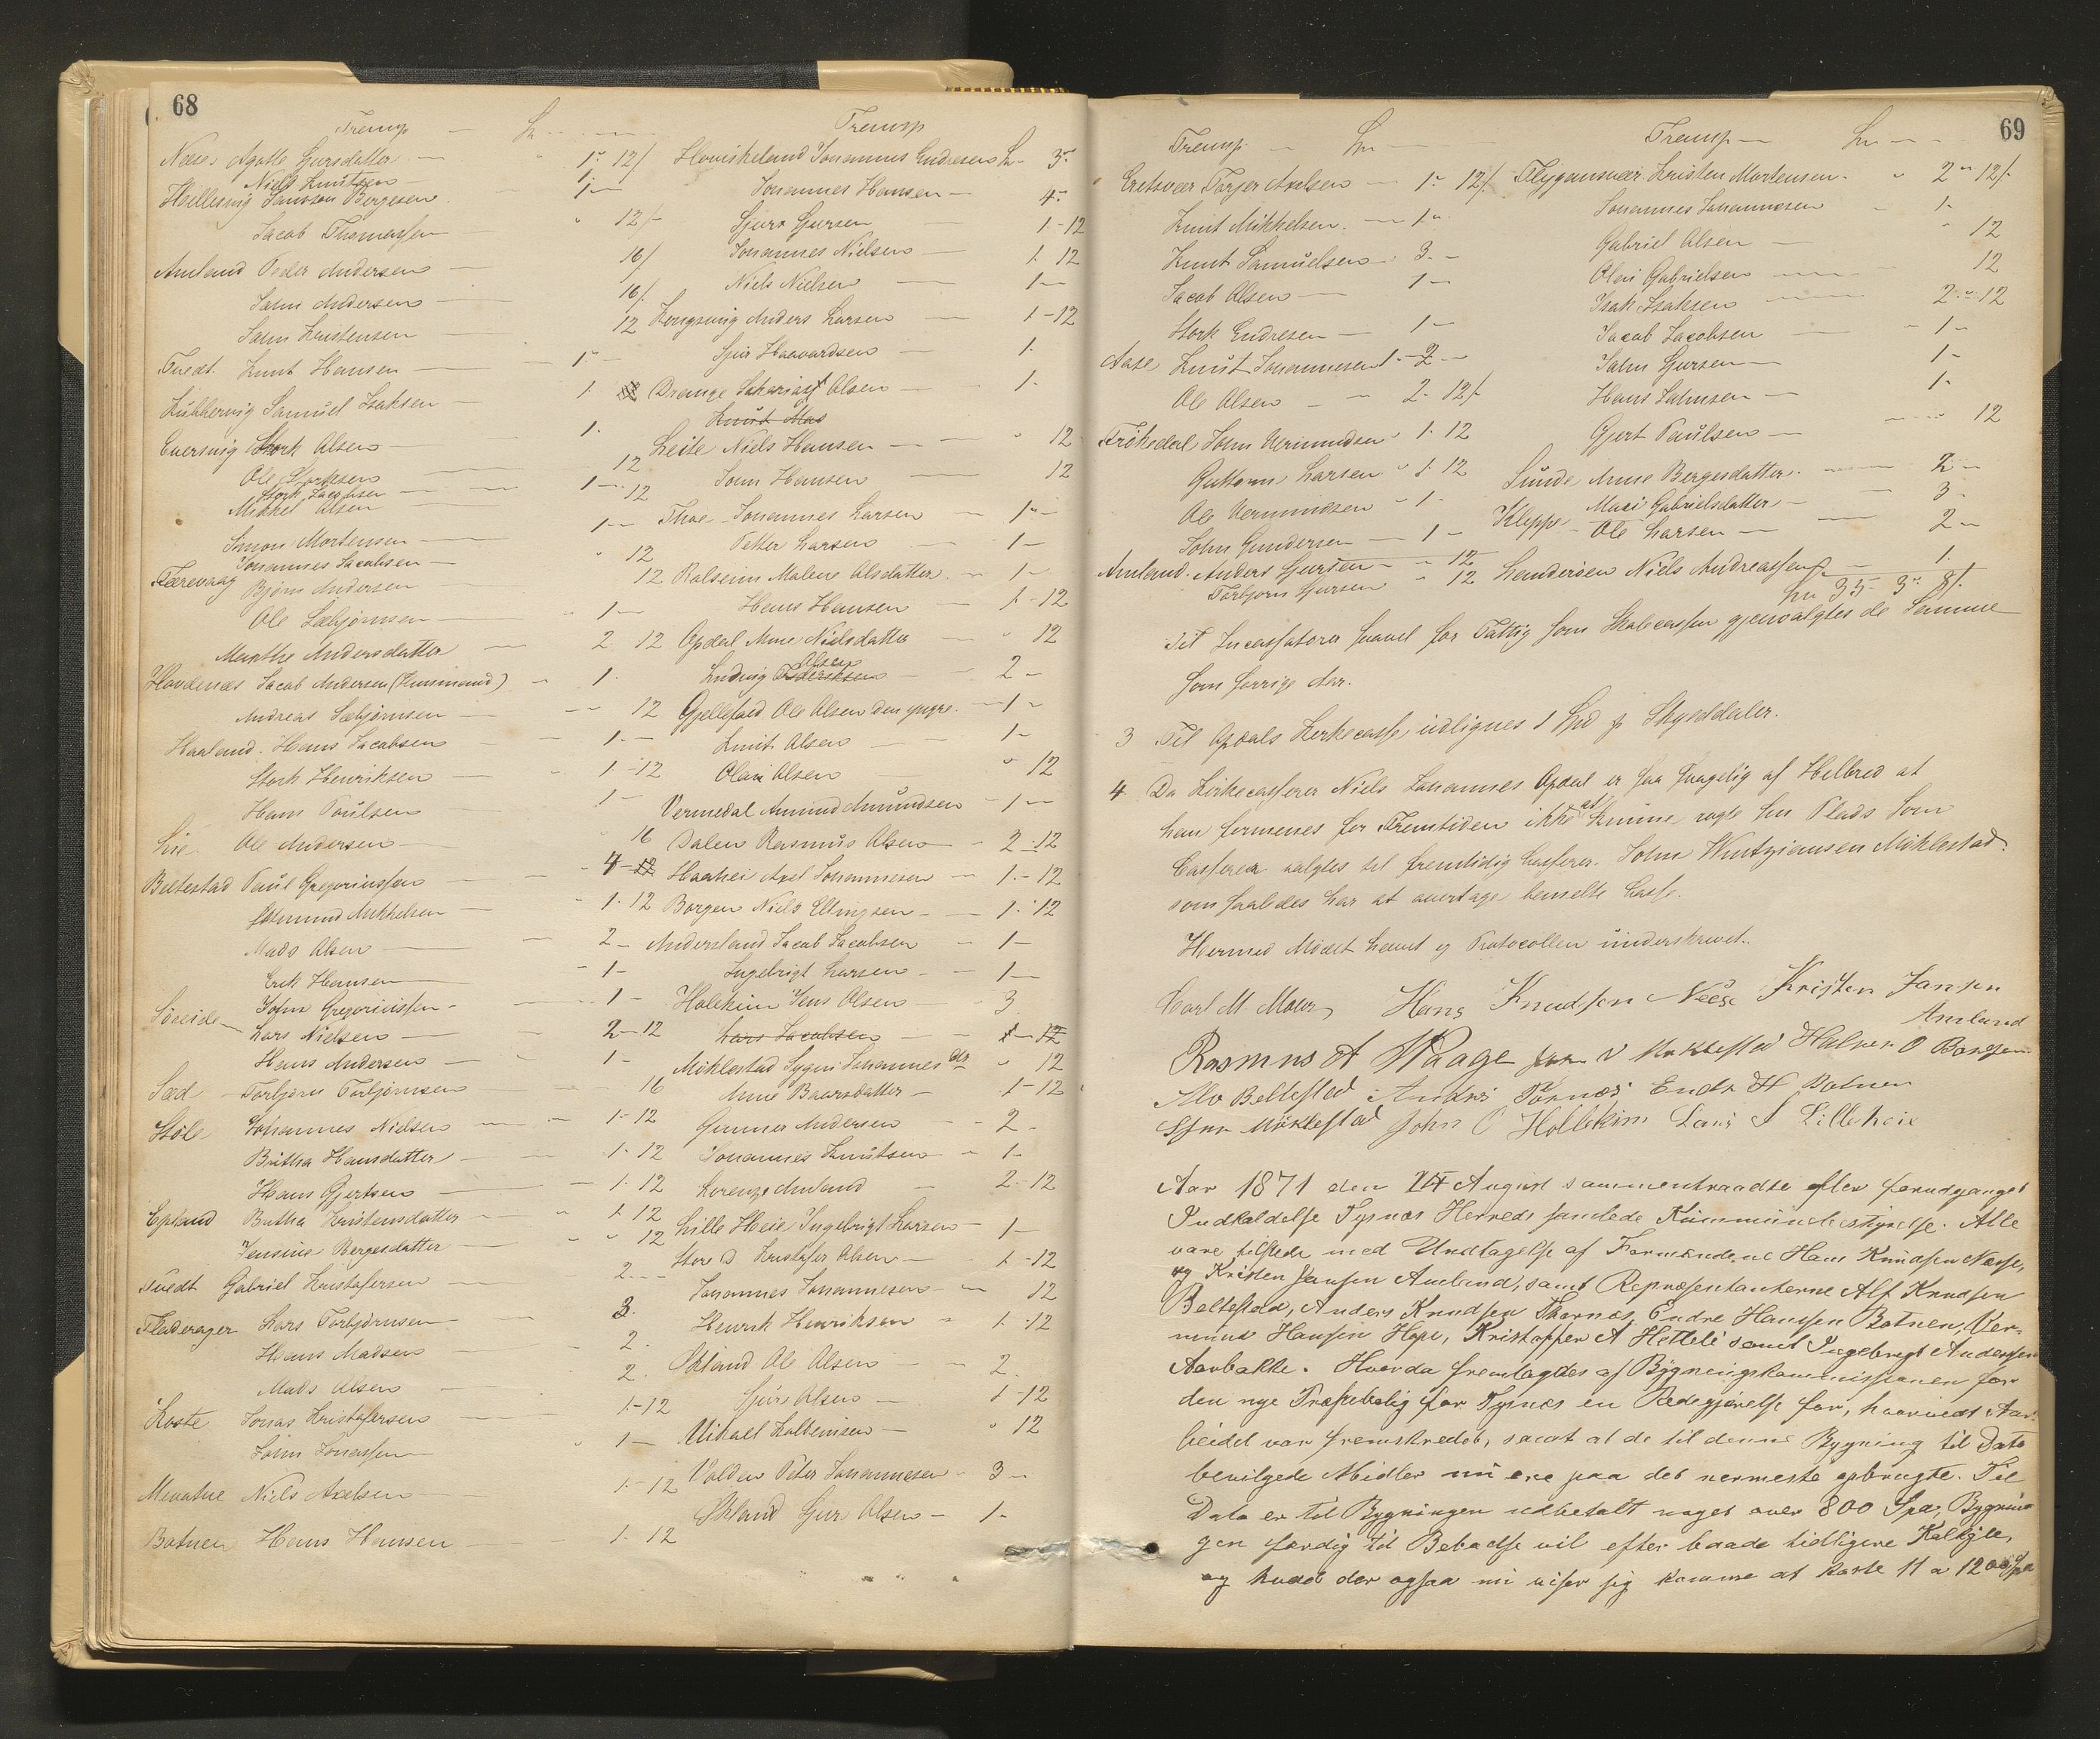 68
Transp — Sp — —
Neese Agatte Gursdatter — " 1" 12/
Niels Knutsen — 1.
Hellesvig Samson Børgesen 1 —
Jacob Thomassen — " 12/-
Amland Peder Andersen — 16/
John Andersen — 16/.
John Kristensen — 12
Tvedt Knut Hansen — 1" —
Lukkervig Samuel Isaksen — 1.
Eversvig Stork Olsen — 1.
Ole Storksen — 12
Stork Jacobsen — 1 —
Mikkel Olsen — 12
Simon Mortensen — 1 —
Johannes Jacobsen — " 12
Færevaag Bjørn Andersen 12
Ole Sæbjørnsen — " 1 —
Marthe Andersdatter — 2. 12
Hovdenæs Jacob Andersen (Husmand) — 1.
Andreas Sæbjørnsen — 12
Haaland. Hans Jacobsen — 1. —
Stork Henriksen — " 1 - 12
Hans Poulsen 1 -
Lie Ole Andersen — " 16
Beltestad Paul Gregoriussen — 4 -
Aamund Mikkelsen — " 1. 12
Mads Olsen — 2 -
Erik Hansen — - 1 -
Søreide John Gregoriussen - 1 -
Lars Nielsen — 2 - 12
Hans Andersen — 1 -
Sæd Torbjørn Torbjørnsen 16
Støle Johannes Nielsen — 1 - 12
Britha Hansdatter — 1. 12
Hans Gjertsen — 1. 12
Epland Britha Kristensdatter — 1. 12
Jensine Børgesdatter — " " 12
Tvedt Gabriel Kristofersen — 2. —
Fladerager Lars Torbjørnsen — 3.
Hans Madsen — 2.
Mads Olsen — 2.
Koste Jonas Kristofersen — 1 - 12
John Jonassen — " 1 —
Mevatne Niels Axelsen — 1. 12
Botnen Hans Hansen — 1. 12
Transp
Hoviskeland Johannes Endresen Sp. 3"
Johannes Hansen — 4"
Sjur Gursen 1 - 12
Johannes Nielsen — 1. 12
Niels Nielsen — 1 —
Kongsvig Anders Larsen — 1 - 12
Sjur Haavardsen — 1.
Drange Sakarias Olsen — 1.
Knut Mas
Leite Niels Hansen — " 12
John Hansen — 12
Thoe - Johannes Larsen — 1" -
Petter Larsen — 1 -
Ralseim Malene Olsdatter — 1 -
Hans Hansen — 1 - 12
Opdal Anne Nielsdatter — " 12
Ludvig Olsen — 2 -
Gjellefald Ole Olsen den yngre. — 1 -
Knut Olsen — 1 -
Olai Olsen — " 12
Vermedal Amund Amundsen — 1 —
Dalen Rasmus Olsen — 2 - 12
Haahei Axel Johannesen — 1. - 12
Borgen Niels Ellingsen — 1 - 12
Andersland Jacob Jacobsen — 1 -
Ingebrigt Larsen — 1 —
Holekim Jens Olsen — 3
Lars Jacobsen — 1 - 12
Miklestad Sygni Johannesdtr " 12
Anne Baarsdatter — 1 - 12
Gunner Andersen — 2 -
Johannes Knutsen — 1 -
Lorenze Amland — 2 - 12
Lille Heie Ingebrigt Larsen — 1 —
Store D Kristofer Olsen — 1 - 12
Johannes Johannesen — 12
Henrik Henriksen — 1 - 12
Økland Ole Olsen — 2.
Sjur Olsen — 1 - 12
Mikael Kolbeinsen — " 12
Volden Peter Johannesen - 3 -
Økland Sjur Olsen — 1 -
69
Transp. — Sp —
Gretsvær Torger Axelsen — 1" 12/
Knut Mikkelsen. — 1"
Knut Samuelsen — 3. -
Jacob Olsen — 1 —
Stork Endresen — 1 -
Aase Knut Johannesen 2 —
Ole Olsen — " 2. 12/
Frøkedal John Vermundsen " 1. 12
Guttorm Larsen " 1. 12
Ole Vermundsen - 1.
John Gundersen — 1 -
Amland. Anders Gursen — 12
Torbjørn Gursen " 12
Transp — Sp —
Flygansvær. Kristen Mortensen. " 2" 12/.
Johannes Johannesen — 1.
Gabriel Olsen — " 12
Olai Gabrielsen — 12
Isak Isaksen — 2 " 12
Jacob Jacobsen — " 1 -
John Gursen — 1 -
Hans Johnsen — 1.
Gjert Paulsen — 12
Sunde Anne Børgesdatter. — 2 -
Mari Gabrielsdatter — 3.
Kleppe - Ole Larsen — 2 -
Henderøen Niels Andreassen — 1.
Sp 35 - 3" 8/.
Til Incassatorer saavel for Fattig som Skolecassen gjenvalgtes de Samme
som forrige Aar.
3 Til Opdals Kirkecasse, udlignes 1 Spd pr Skylddaler.
4 Da Kirkecasserer Niels Johannes Opdal er saa svagelig af Helbred at
han formenes for Fremtiden ikke at kunne røgte sin Plads som
Casserer valgtes til fremtidig Casserer. John Wintziansen Miklestad.
som saaledes har at overtage bemelte Casse.
Hermed Mødet hævet og Protocollen underskrevet.
Carl M. Moer Hans Knudsen Neese Kristen Jansen
Amland
Rasmus A Waage John V Møklestad Halvor O Borgen
Alv Beltestad Anders Tørnæs Endr H Botnen
Sjur Møklestad John O Hollekim Lars I Lilleheie
Aar 1871 den August sammentraadte efter forudganget
Indkaldelse Tysnæs Herreds samlede Kommunebestyrelse. Alle
vare tilstede med Undtagelse af Formændene Hans Knudsen Neese,
og Kristen Jansen Amland, samt Repræsentanterne Alf Knudsen
Beltestad, Anders Knudsen Thornæs, Endre Hansen Botnen, Ver-
mund Hansen Hope, Kristoffer A Hetleli samt Ingebrigt Andersen
Aarbakke. Hvorda fremlagdes af Bygningskommissionen for
den nye Præstebolig for Tysnæs en Redegjørelse for, hvorvidt Ar-
beidet var fremskredet, samt at de til denne Bygning til Dato
bevilgede Midler nu ere paa det nærmeste opbrugte. Til
Dato er til Bygningen udbetalt noget over 800 Spd, Bygnin-
gen færdig til Beboelse vil efter baade tidligere Kalkyle,
og hvad der ogsaa nu viser sig komme at koste 11 a 1200 Spd